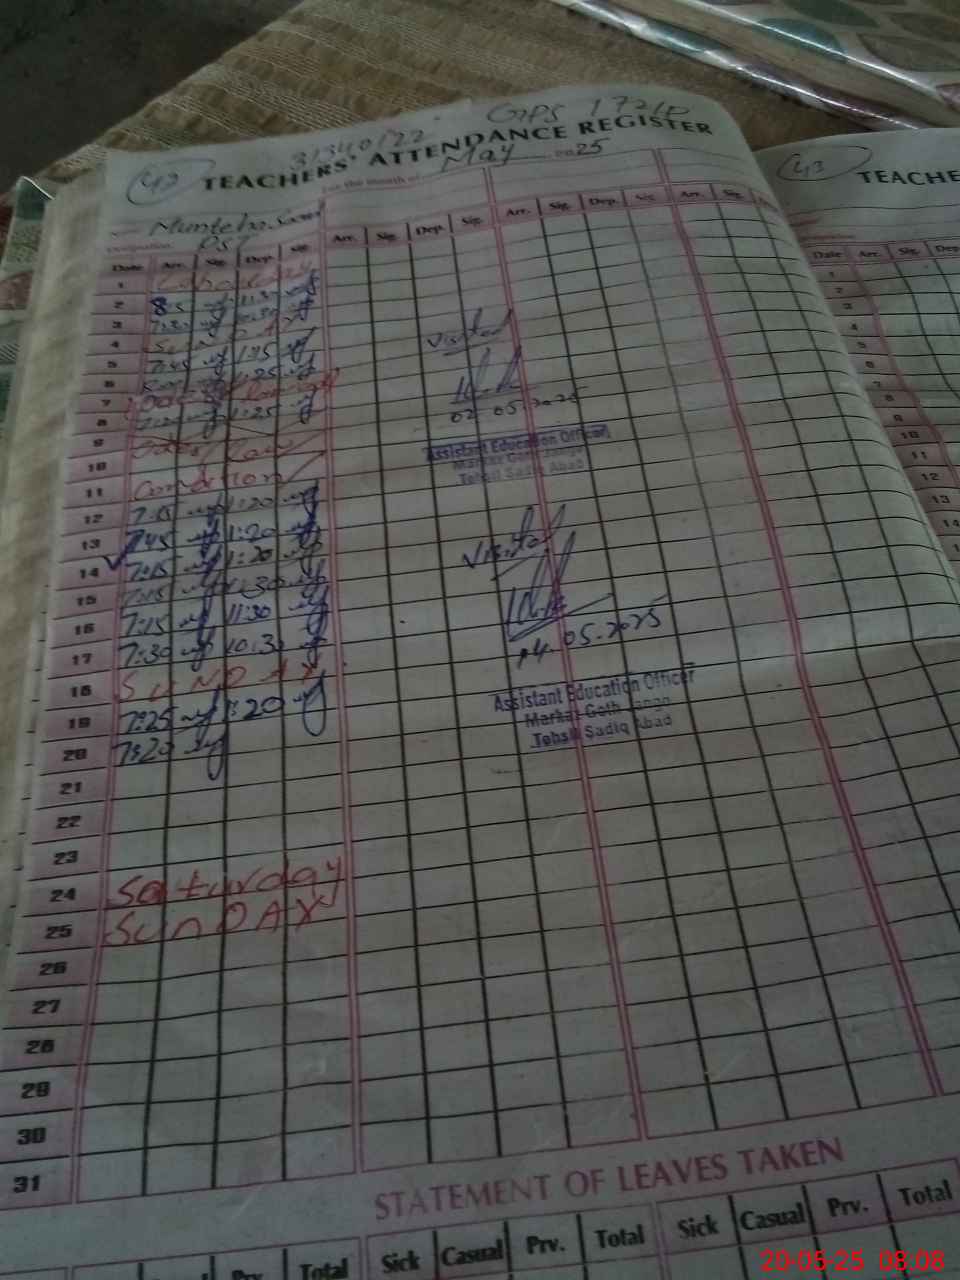 GPS 172/P
31340122
TEACHERS' ATTENDANCE REGISTER
42
For the month of May 2025
Designation PST
Date Arr. Sig. Dep. Sig. Arr. Sig. Dep. Sig. Arr. Sig. Dep. Sig. Arr. Sig.
1
2 8:5 11:30
3 7:30 10:30
4 SUNDAY
5 7:45 1:15
6 1:25
7
8 7:20 1:25
9
10
11 Condition
12 7:15 1:20
13 7:45 1:20
14 7:15 1:20
15 7:15 11:30
16 7:15 11:30
17 7:30 10:30
18 SUNDAY
19 7:25 1:20
20 7:20
21
22
23
24 Saturday
25 SunDAY
26
27
28
29
30
31
Visited
02.05.2025
Assistant Education Officer
Tehsil Sadiq Abad
Visited
14.05.2025
Assistant Education Officer
Markaz Goth Jango
Tehsil Sadiq Abad
STATEMENT OF LEAVES TAKEN
Prv. Total Sick Casual Prv. Total Sick Casual Prv. Total
43
TEACHE
Date Arr. Sig. Dep
1
2
3
4
5
6
7
8
9
10
11
12
13
14
20-05-25 08:08